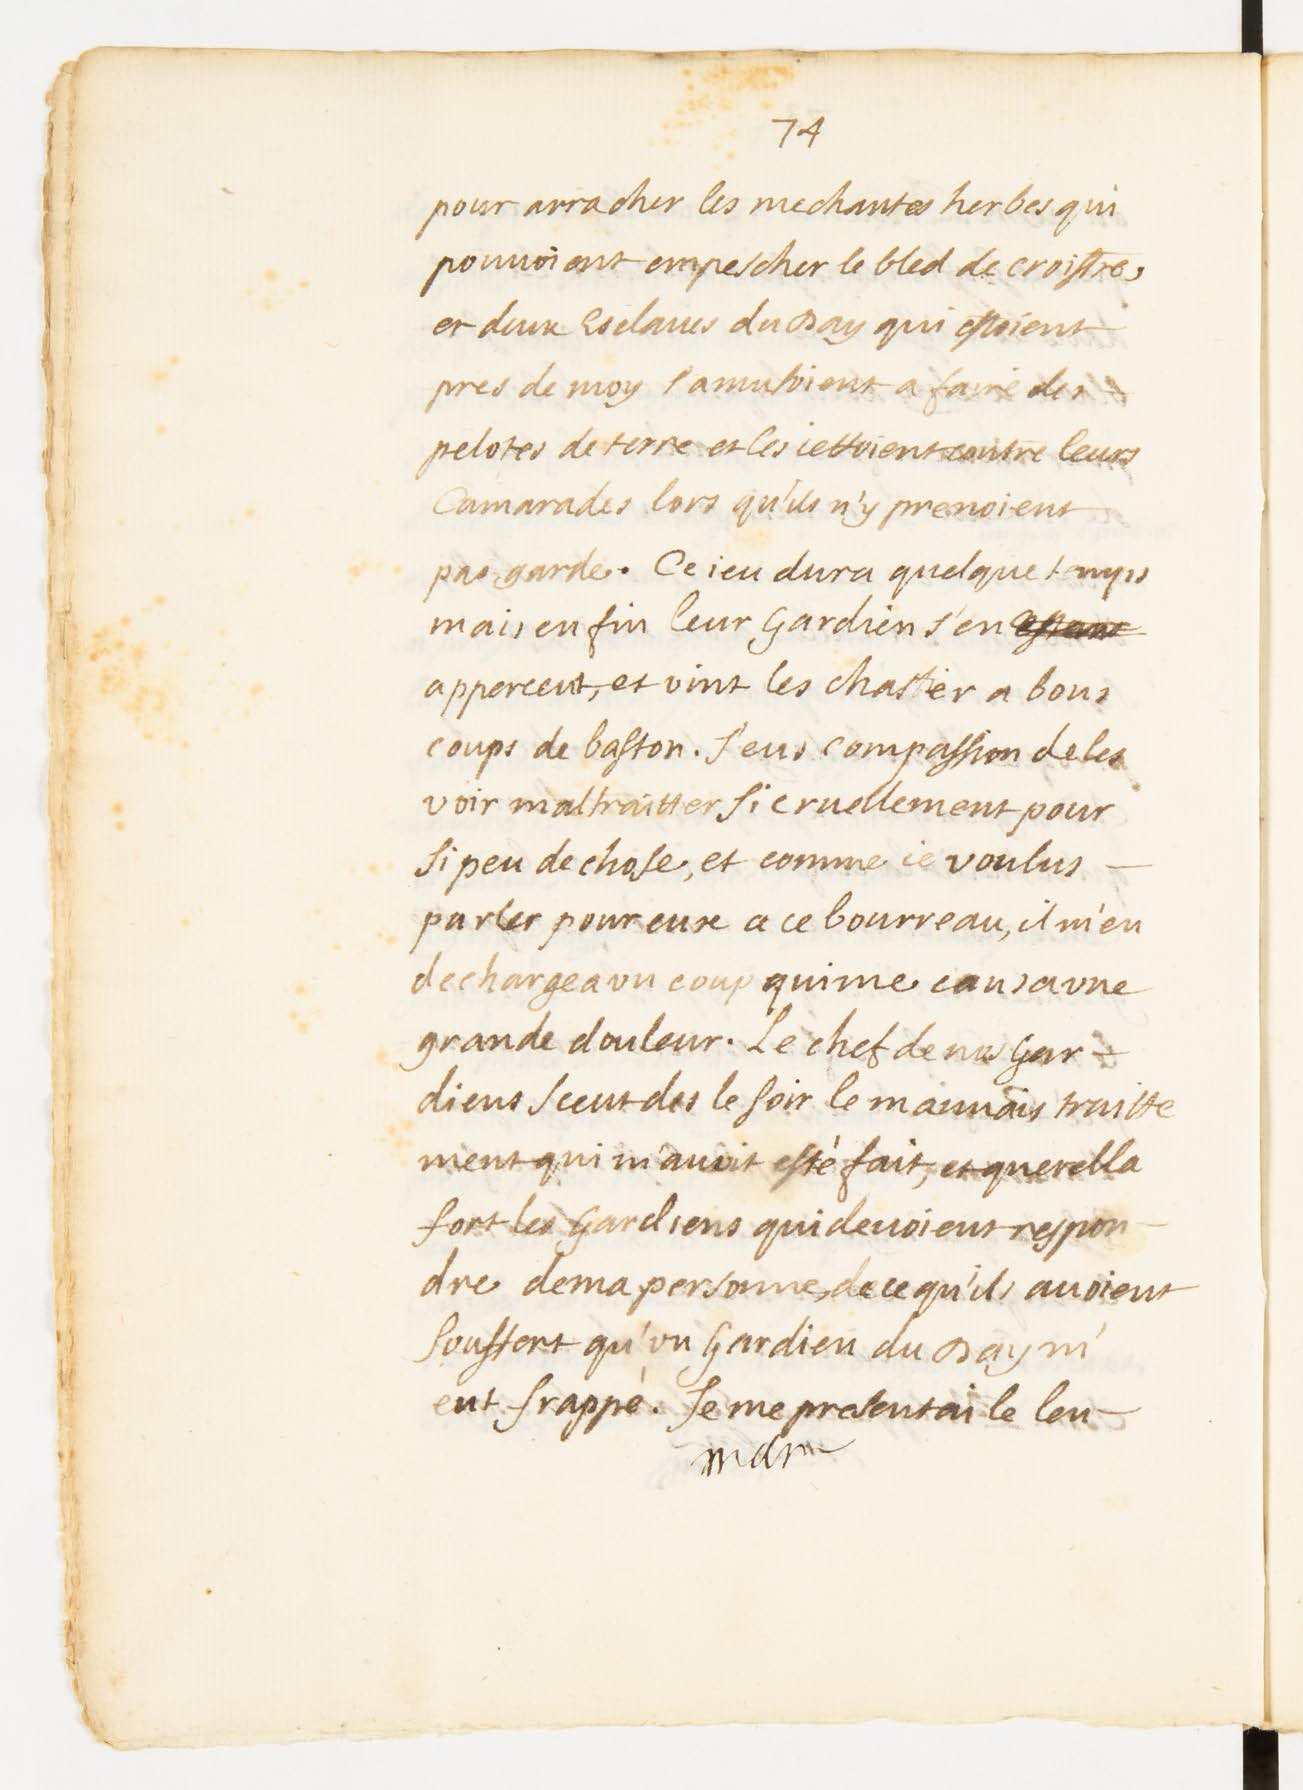 74
pour arracher les mechantes herbes qui
pouuoient empescher le bled de croistre,
et deux Esclaues du Day qui estoient
pres de moy s'amusoient a faire des
pelotes de terre et les iettoient contre leurs
Camarades lors qu'ils n'y prenoient
pas garde. Ce ieu dura quelque temps
mais enfin leur Gardien s'en estant
apperceut, et vint les chastier a bons
coups de baston. J'eus compassion de les
voir maltraitter si cruellement pour
si peu de chose, et comme ie voulus
parler pour eux a ce bourreau, il m'en
dechargea vn coup qui me causa vne
grande douleur. Le chef de nos Gar-
diens sceut des le soir le mauuais traitte
ment qui m'auoit esté fait, et querella
fort les Gardiens qui deuoient respon-
dre de ma personne, de ce qu'ils auoient
souffert qu'vn Gardien du Day m'
eut frappé. Je me presentai le len-